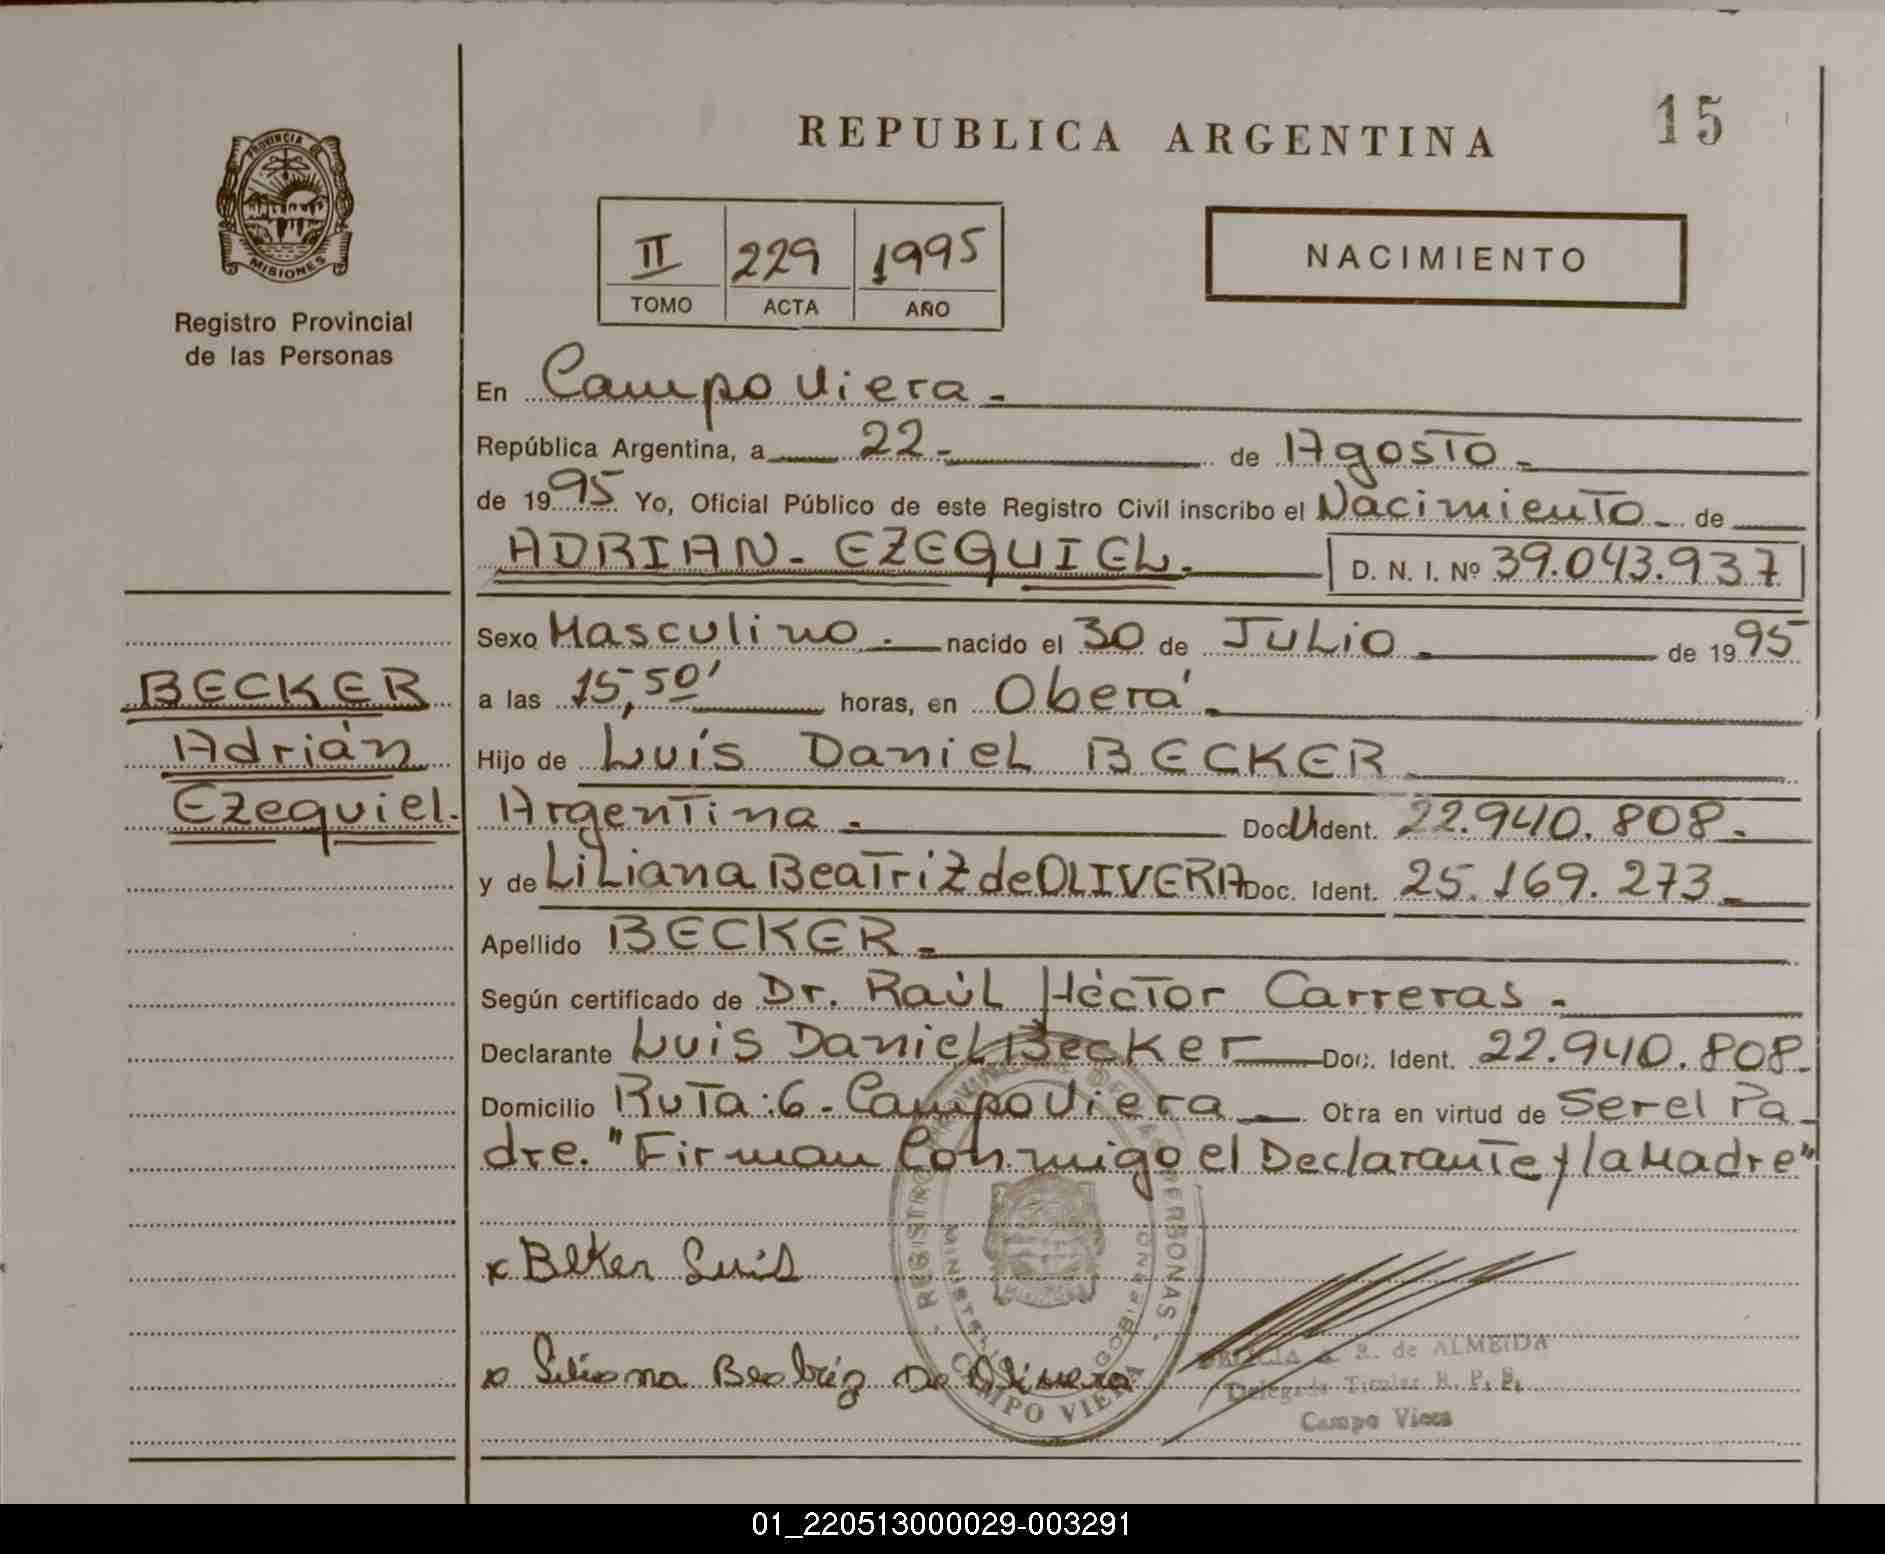 REPUBLICA ARGENTINA
15
PROVINCIA DE
MISIONES
Registro Provincial
de las Personas
II 229 1995
TOMO ACTA AÑO
NACIMIENTO
En Campo Viera.-
República Argentina, a 22.- de Agosto.-
de 1995 Yo, Oficial Público de este Registro Civil inscribo el Nacimiento.- de
ADRIAN- EZEQUIEL.- D. N. I. Nº 39.043.937
Sexo Masculino.- nacido el 30 de Julio.- de 1995
a las 15,50' horas, en Oberá.-
Hijo de Luís Daniel BECKER.-
Argentina.- Doc. U Ident. 22.940.808.-
y de Liliana Beatriz de OLIVERA Doc. Ident. 25.169.273.-
Apellido BECKER.-
Según certificado de Dr. Raúl Héctor Carreras.-
Declarante Luis Daniel Becker Doc. Ident. 22.940.808.-
Domicilio Ruta:6.-Campo Viera.- Obra en virtud de Ser el Pa-
dre. "Firman Conmigo el Declarante y la Madre"
BECKER
Adrián
Ezequiel.-
x Beker Luis
x Liliana Beatriz De Olivera
REGISTRO PROVINCIAL DE LAS PERSONAS
MINISTERIO GOBIERNO
CAMPO VIERA
R. de ALMEIDA
Delegada Titular R. P. P.
Campo Viera
01_220513000029-003291